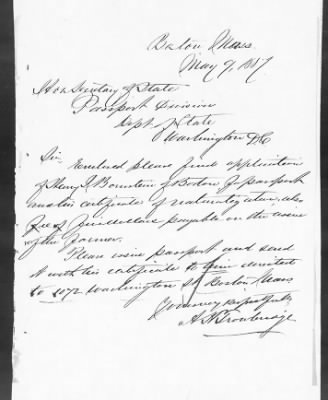 Boston Mass.
May 9, 1887
Hon Secretary of State
Passport Division
Dept of State
Washington DC
Sir, Enclosed please find application
of Henry Bornstein of Boston for passport
his certificate of naturalization, also
fee of dollars payable on the
of the former.
Please issue passport and send
it with his certificate to him directed
to 1072 Washington St Boston Mass
Yours very respectfully
A N Trowbridge